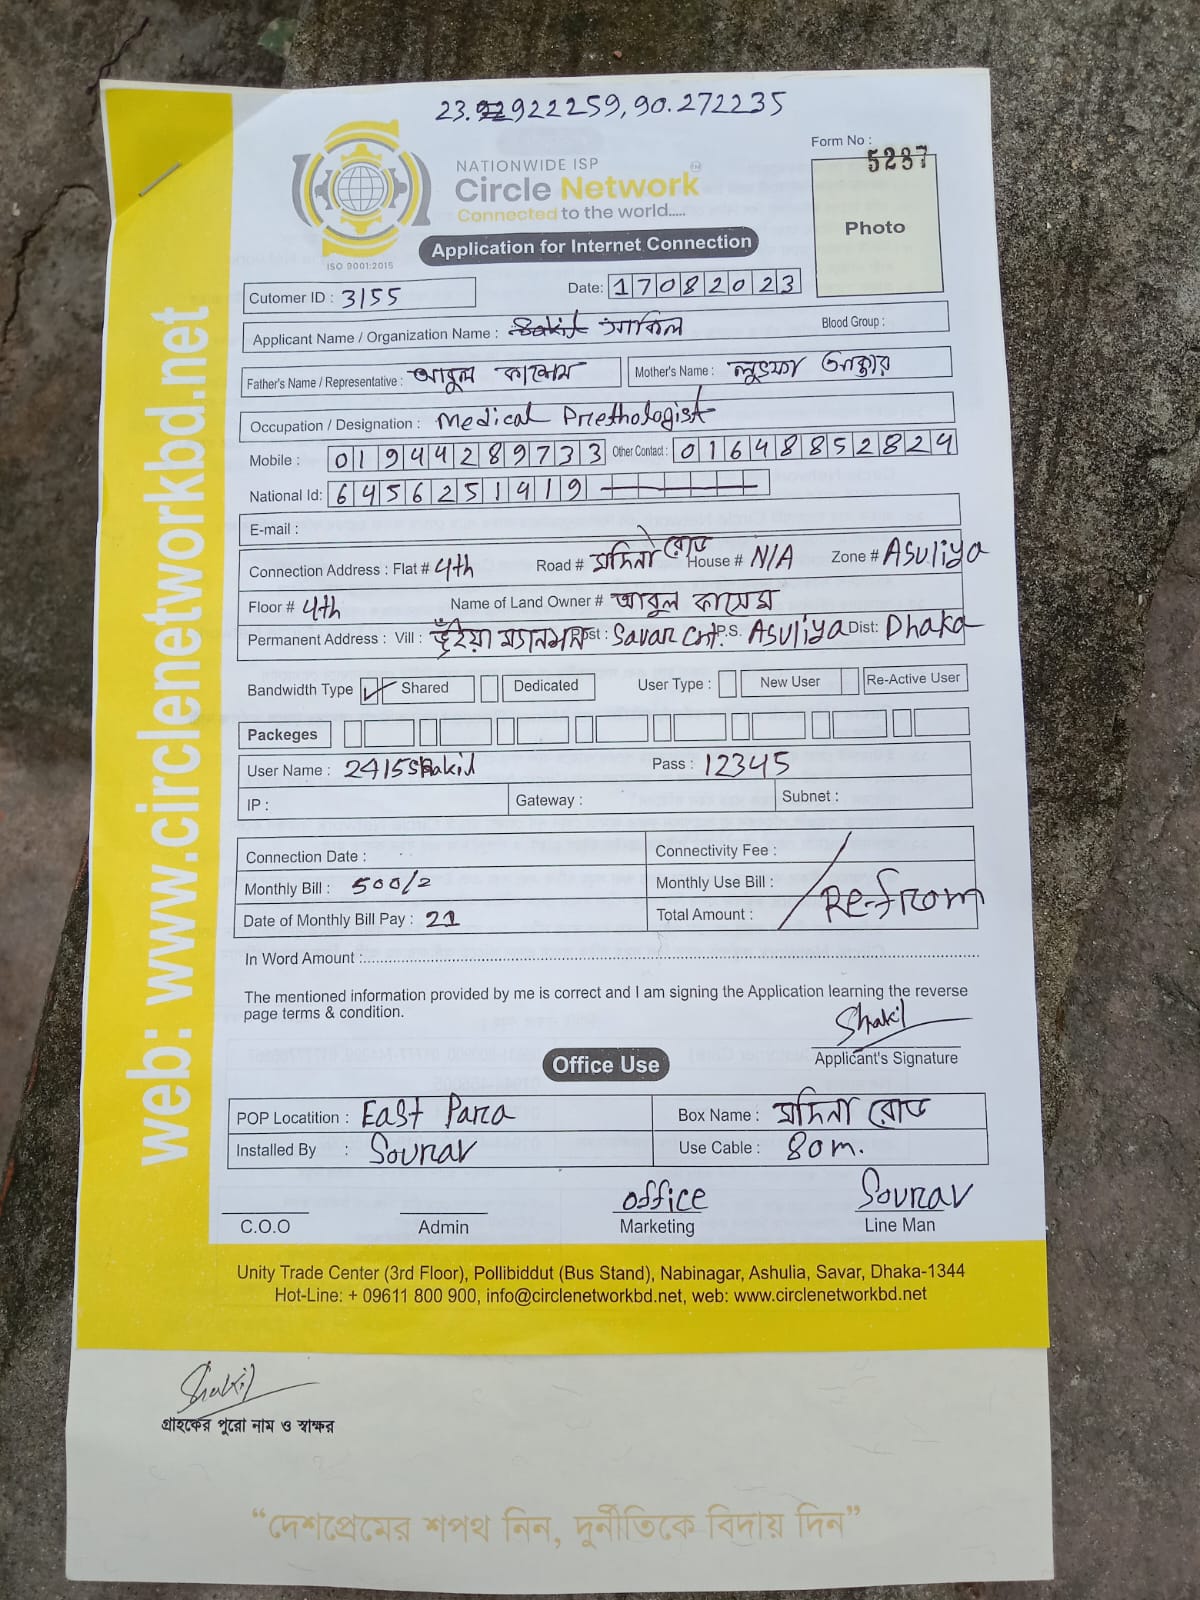 23.922259, 90.272235
Form No :
5287
NATIONWIDE ISP
Circle Network
Connected to the world.....
ISO 9001:2015
Photo
Application for Internet Connection
Cutomer ID : 3155
Date: 17082023
Applicant Name / Organization Name : সাকিল Blood Group :
Father's Name / Representative : আবুল কাশেম Mother's Name : লুৎফা আক্তার
Occupation / Designation : Medical Priethologist
Mobile : 01944289733 Other Contact : 01648852824
National Id: 6456251419
E-mail :
Connection Address : Flat # 4th Road # মদিনা রোড House # N/A Zone # Asuliya
Floor # 4th Name of Land Owner # আবুল কাসেম
Permanent Address : Vill : ভূঁইয়া ম্যানশন Post : Savar Cnt. P.S. Asuliya Dist: Dhaka
Bandwidth Type Shared Dedicated User Type : New User Re-Active User
Packeges
User Name : 2415shakil Pass : 12345
IP : Gateway : Subnet :
Connection Date : Connectivity Fee :
Monthly Bill : 500/2 Monthly Use Bill :
Date of Monthly Bill Pay : 21 Total Amount : Re-from
In Word Amount :
The mentioned information provided by me is correct and I am signing the Application learning the reverse
page terms & condition.
Shakil
Applicant's Signature
Office Use
POP Locatition : East Para Box Name : মদিনা রোড
Installed By : Sourav Use Cable : 80m.
office Sourav
C.O.O Admin Marketing Line Man
Unity Trade Center (3rd Floor), Pollibiddut (Bus Stand), Nabinagar, Ashulia, Savar, Dhaka-1344
Hot-Line: + 09611 800 900, info@circlenetworkbd.net, web: www.circlenetworkbd.net
web: www.circlenetworkbd.net
Shakil
গ্রাহকের পুরো নাম ও স্বাক্ষর
“দেশপ্রেমের শপথ নিন, দুর্নীতিকে বিদায় দিন”